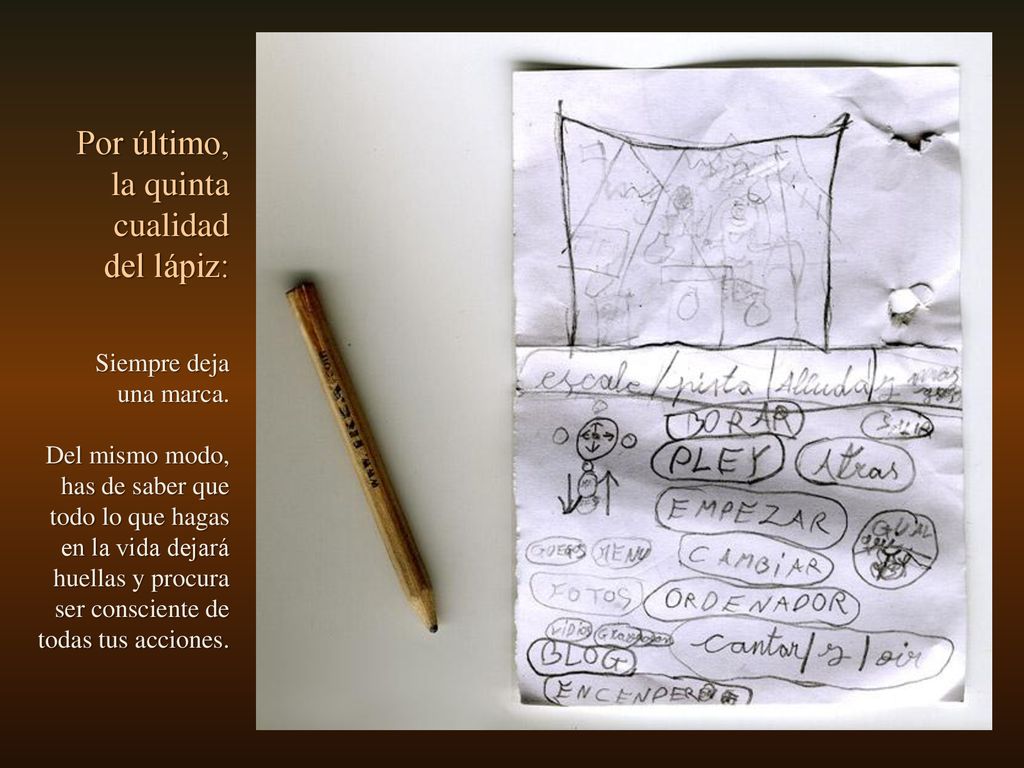 Por último,
la quinta
cualidad
del lápiz:
Siempre deja
una marca.
Del mismo modo,
has de saber que
todo lo que hagas
en la vida dejará
huellas y procura
ser consciente de
todas tus acciones.
escale/pista/Alluda/s
BORAR
SALIR
PLEY
Atras
EMPEZAR
GUAL
GUEGOS MENU
CAMBIAR
FOTOS
ORDENADOR
vidios
BLOG
cantar/s/oir